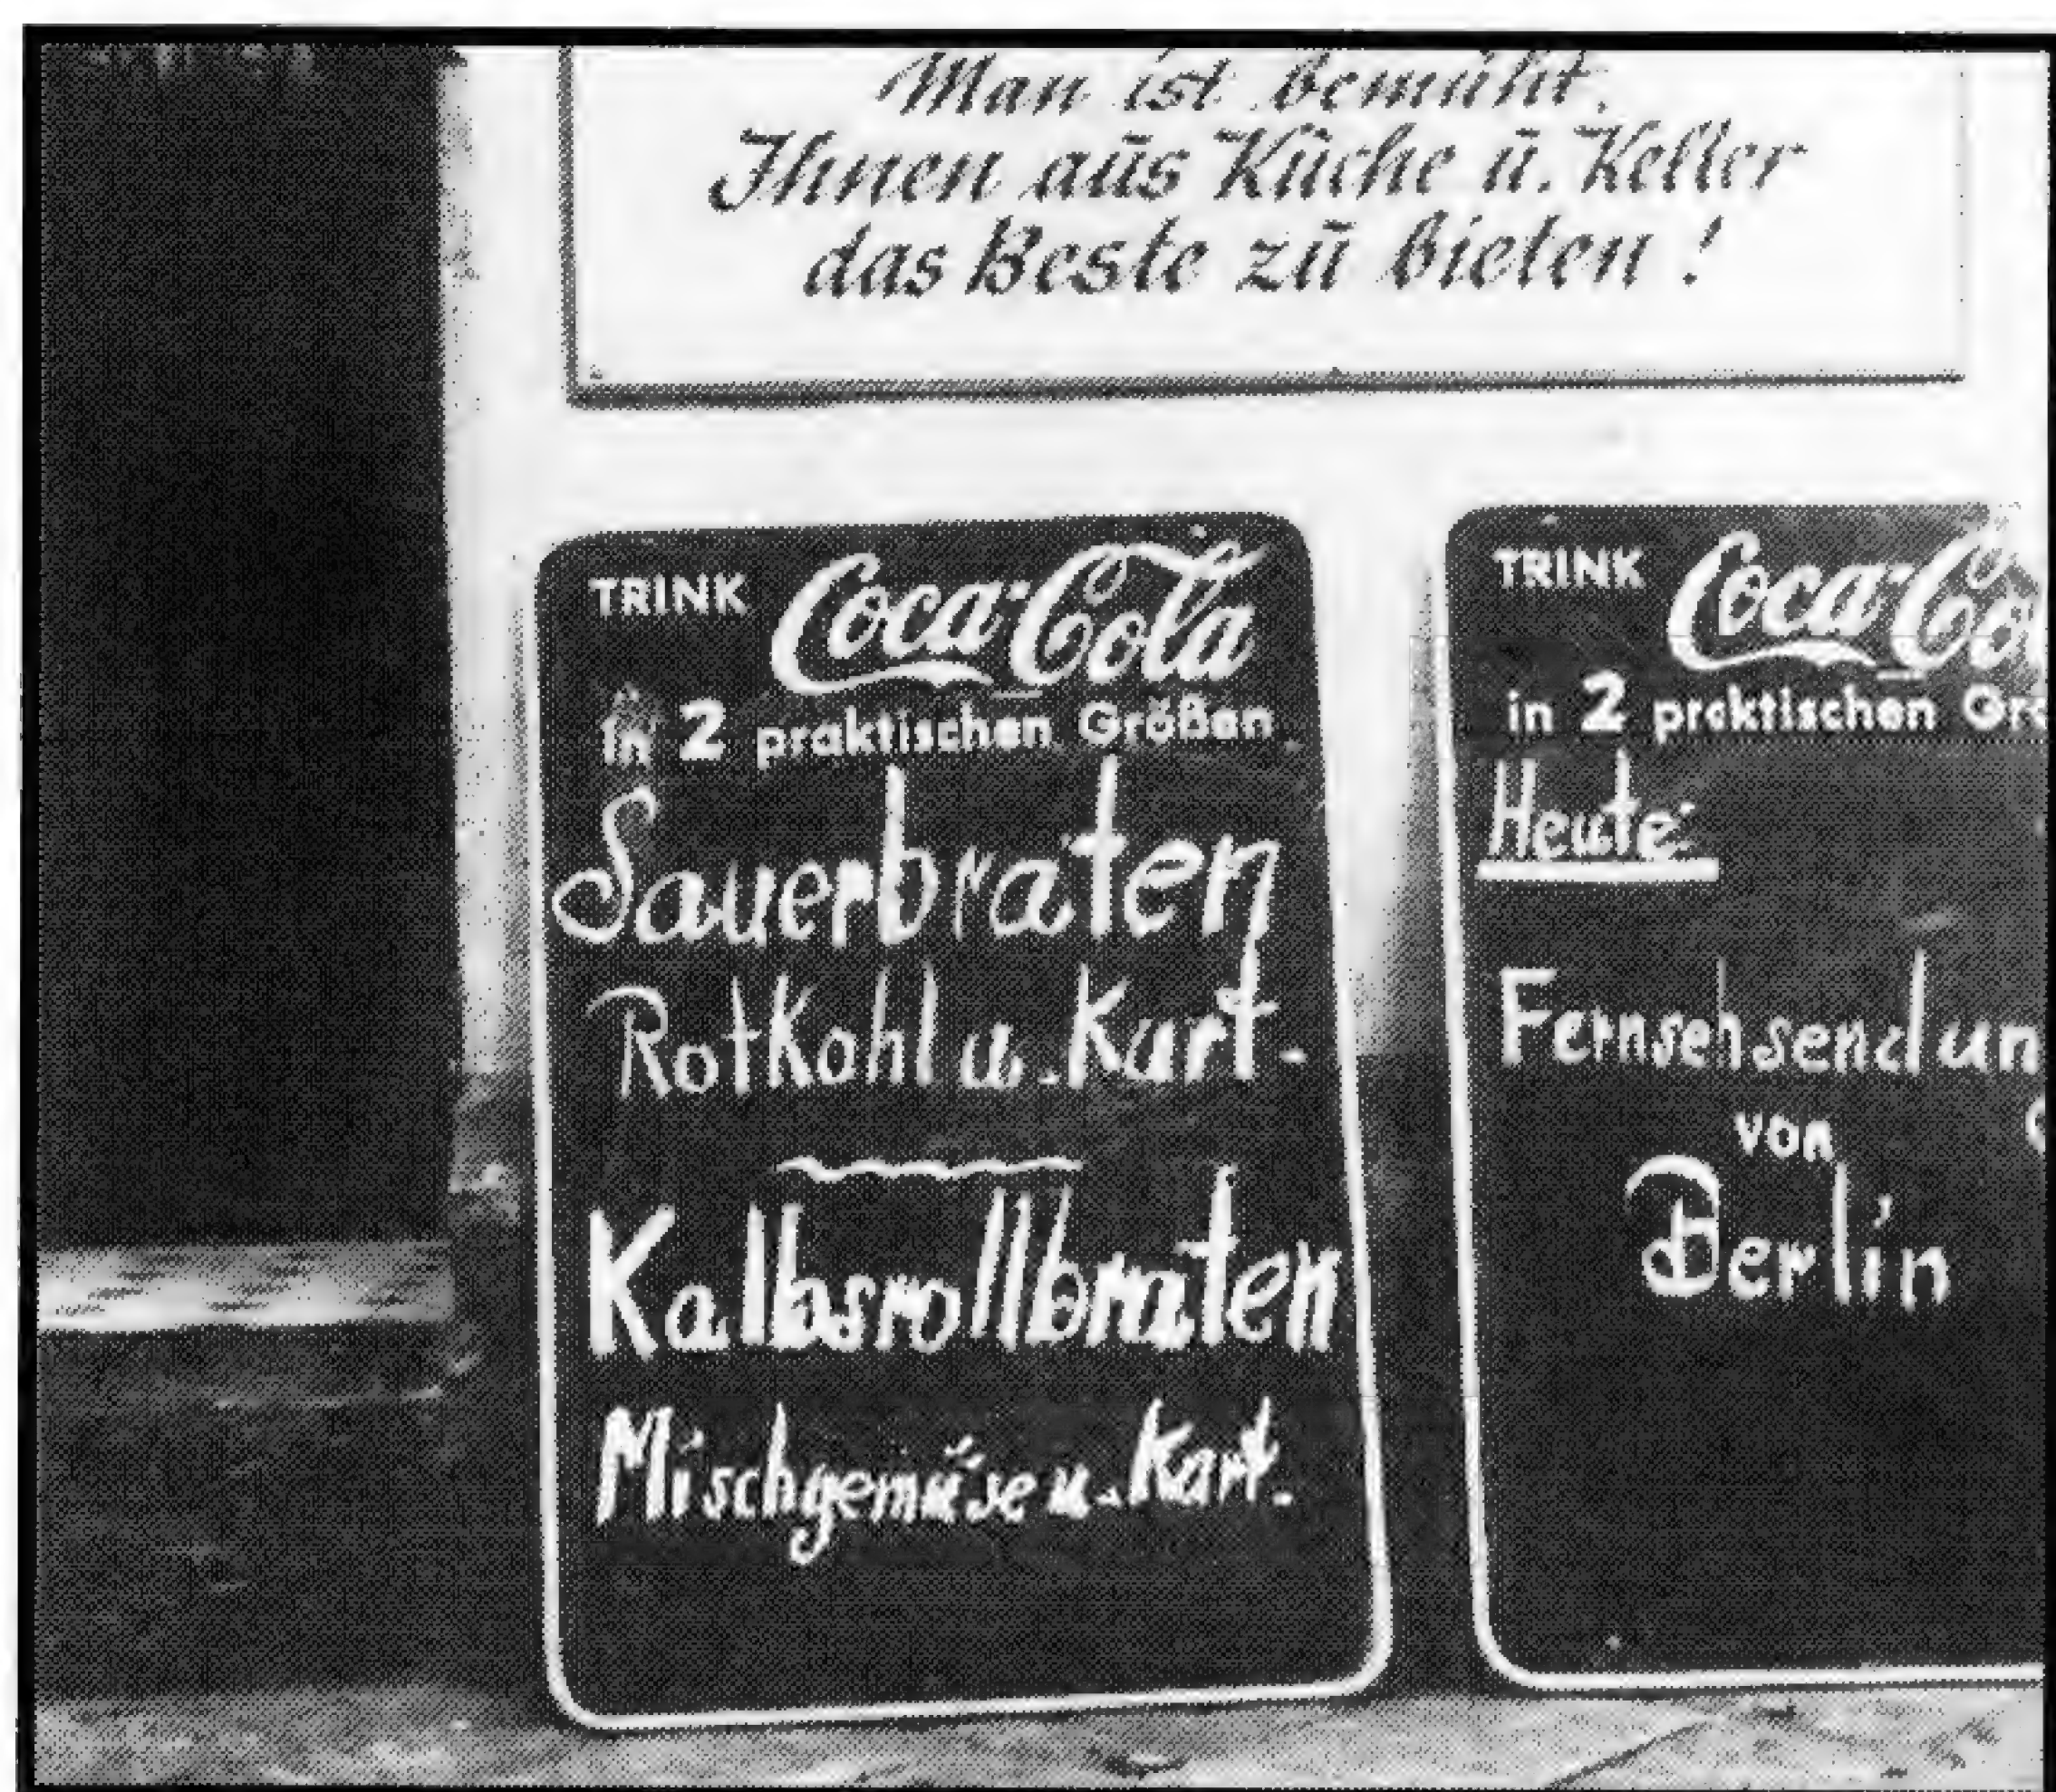 Man ist bemüht,
Ihnen aus Küche u. Keller
das Beste zu bieten!
TRINK Coca-Cola
in 2 praktischen Größen
Sauerbraten
Rotkohl u. Kart.
Kalbsrollbraten
Mischgemüse u. Kart.
TRINK Coca-Co
in 2 praktischen Gr
Heute:
Fernsehsendun
von
Berlin